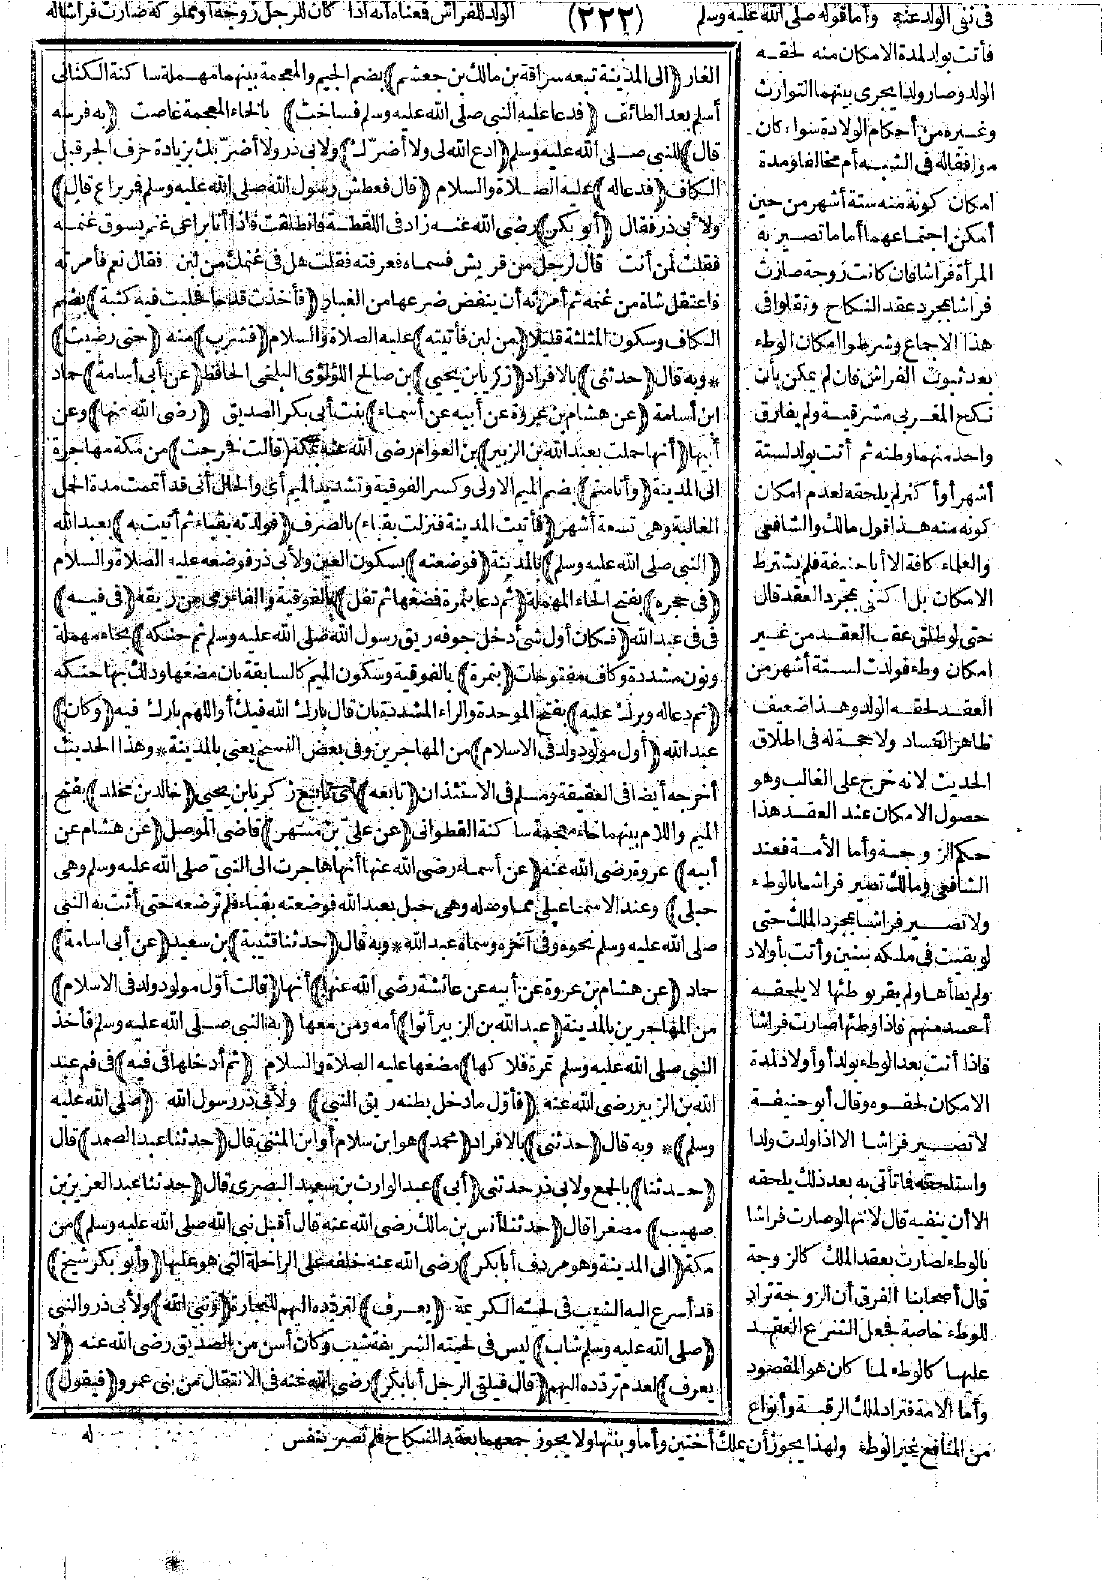 فى نفى الولد عنه وأما قوله صلى الله عليه وسلم (٢٢٢) الولد للفراش فمعناه أنه اذا كان للرجل زوجة أو مملوكة صارت فراشا له
فأتت بولد لمدة الامكان منه لحقه
الولد وصار ولدا يجرى بينهما التوارث
وغيره من أحكام الولادة سواء كان
موافقا له فى الشبه أم مخالفا ومدة
امكان كونه منه ستة أشهر من حين
أمكن اجتماعهما أما ما تصير به
المرأة فراشا فان كانت زوجة صارت
فراشا بمجرد عقد النكاح ونقلوا فى
هذا الاجماع وشرطوا امكان الوطء
بعد ثبوت الفراش فان لم يمكن بأن
نكح المغربى مشرقية ولم يفارق
واحد منهما وطنه ثم أتت بولد لستة
أشهر أو أكثر لم يلحقه لعدم امكان
كونه منه هذا قول مالك والشافعى
والعلماء كافة الا أبا حنيفة فلم يشترط
الامكان بل اكتفى بمجرد العقد قال
حتى لو طلق عقب العقد من غير
امكان وطء فولدت لستة أشهر من
العقد لحقه الولد وهذا ضعيف
ظاهر الفساد ولا حجة له فى اطلاق
الحديث لانه خرج على الغالب وهو
حصول الامكان عند العقد هذا
حكم الزوجة وأما الأمة فعند
الشافعى ومالك تصير فراشا بالوطء
ولا تصير فراشا بمجرد الملك حتى
لو بقيت فى ملكه سنين وأتت بأولاد
ولم يطأها ولم يقر بوطئها لا يلحقه
أحد منهم فاذا وطئها صارت فراشا
فاذا أتت بعد الوطء بولد أو أولاد لمدة
الامكان لحقوه وقال أبو حنيفة
لا تصير فراشا الا اذا ولدت ولدا
واستلحقه فما تأتى به بعد ذلك يلحقه
الا أن ينفيه قال لانها لو صارت فراشا
بالوطء لصارت بعقد الملك كالزوجة
قال أصحابنا الفرق أن الزوجة تراد
للوطء خاصة فجعل الشرع العقد
عليها كالوطء لما كان هو المقصود
وأما الامة فتراد لملك الرقبة وأنواع
من المنافع غير الوطء ولهذا يجوز أن يملك أختين وأما وبنتها ولا يجوز جمعهما بعقد النكاح فلم تصر بنفس
الغار (الى المدينة تبعه سراقة بن مالك بن جعشم) بضم الجيم والمعجمة بينهما مهملة ساكنة الكنانى
أسلم بعد الطائف (فدعا عليه النبى صلى الله عليه وسلم فساخت) بالخاء المعجمة غاصت (به فرسه
قال) للنبى صلى الله عليه وسلم (ادع الله لى ولا أضرك) ولابى ذر ولا أضر بك بزيادة حرف الجر قبل
الكاف (فدعا له) عليه الصلاة والسلام (قال فعطش رسول الله صلى الله عليه وسلم فمر براع قال)
ولأبى ذر فقال (أبو بكر) رضى الله عنه زاد فى اللقطة فانطلقت فاذا أنا براعى غنم يسوق غنمه
فقلت لمن أنت قال لرجل من قريش فسماه فعرفته فقلت هل فى غنمك من لبن فقال نعم فأمرته
فاعتقل شاة من غنمه ثم أمرته أن ينفض ضرعها من الغبار (فأخذت قدحا فحلبت فيه كثبة) بضم
الكاف وسكون المثلثة قليلا (من لبن فأتيته) عليه الصلاة والسلام (فشرب) منه (حتى رضيت)
* وبه قال (حدثنى) بالافراد (زكريا بن يحيى) بن صالح اللؤلؤى البلخى الحافظ (عن أبى أسامة) حماد
ابن أسامة (عن هشام بن عروة عن أبيه عن أسماء) بنت أبى بكر الصديق (رضى الله عنها) وعن
أبيها (أنها حملت بعبد الله بن الزبير) بن العوام رضى الله عنه بمكة (قالت فخرجت) من مكة مهاجرة
الى المدينة (وأنا متم) بضم الميم الاولى وكسر الفوقية وتشديد الميم أى والحال أنى قد أتممت مدة الحمل
الغالبة وهى تسعة أشهر (فأتيت المدينة فنزلت بقباء) بالصرف (فولدته بقباء ثم أتيت به) بعبد الله
(النبى صلى الله عليه وسلم) بالمدينة (فوضعته) بسكون العين ولأبى ذر فوضعه عليه الصلاة والسلام
(فى حجره) بفتح الحاء المهملة (ثم دعا بتمرة فمضغها ثم تفل) بالفوقية والفاء رمى من ريقه (فى فيه)
فى فى عبد الله (فكان أول شئ دخل جوفه ريق رسول الله صلى الله عليه وسلم ثم حنكه) بحاء مهملة
ونون مشددة وكاف مفتوحات (بتمرة) بالفوقية وسكون الميم كالسابقة بأن مضغها ودلك بها حنكه
(ثم دعا له وبرك عليه) بفتح الموحدة والراء المشددة بأن قال بارك الله فيك أو اللهم بارك فيه (وكان)
عبد الله (أول مولود ولد فى الاسلام) من المهاجرين وفى بعض النسخ يعنى بالمدينة * وهذا الحديث
أخرجه أيضا فى العقيقة ومسلم فى الاستئذان (تابعه) أى تابع زكريا بن يحيى (خالد بن مخلد) بفتح
الميم واللام بينهما خاء معجمة ساكنة القطوانى (عن على بن مسهر) قاضى الموصل (عن هشام عن
أبيه) عروة رضى الله عنه (عن أسماء رضى الله عنها أنها هاجرت الى النبى صلى الله عليه وسلم وهى
حبلى) وعند الاسماعيلى مما وصله وهى حبل بعبد الله فوضعته بقباء فلم ترضعه حتى أتت به النبى
صلى الله عليه وسلم نحوه وفى آخره وسماه عبد الله * وبه قال (حدثنا قتيبة) بن سعيد (عن أبى أسامة)
حماد (عن هشام بن عروة عن أبيه عن عائشة رضى الله عنها) أنها (قالت أول مولود ولد فى الاسلام)
من المهاجرين بالمدينة (عبد الله بن الزبير أتوا) أمه ومن معها (به النبى صلى الله عليه وسلم فأخذ
النبى صلى الله عليه وسلم تمرة فلاكها) مضغها عليه الصلاة والسلام (ثم أدخلها فى فيه) فى فم عبد
الله بن الزبير رضى الله عنه (فأول ما دخل بطنه ريق النبى) ولأبى ذر رسول الله (صلى الله عليه
وسلم) * وبه قال (حدثنى) بالافراد (محمد) هو ابن سلام أو ابن المثنى قال (حدثنا عبد الصمد) قال
(حدثنا) بالجمع ولابى ذر حدثنى (أبى) عبد الوارث بن سعيد البصرى قال (حدثنا عبد العزيز بن
صهيب) مصغرا قال (حدثنا أنس بن مالك رضى الله عنه قال أقبل نبى الله صلى الله عليه وسلم) من
مكة (الى المدينة وهو مردف أبا بكر) رضى الله عنه خلفه على الراحلة التى هو عليها (وأبو بكر شيخ)
قد أسرع اليه الشيب فى لحيته الكريمة (يعرف) لتردده اليهم للتجارة (ونبى الله) ولأبى ذر والنبى
(صلى الله عليه وسلم شاب) ليس فى لحيته الشريفة شيب وكان أسن من الصديق رضى الله عنه (لا
يعرف) لعدم تردده اليهم (قال فيلقى الرجل أبا بكر) رضى الله عنه فى الانتقال من بنى عمرو (فيقول)
له